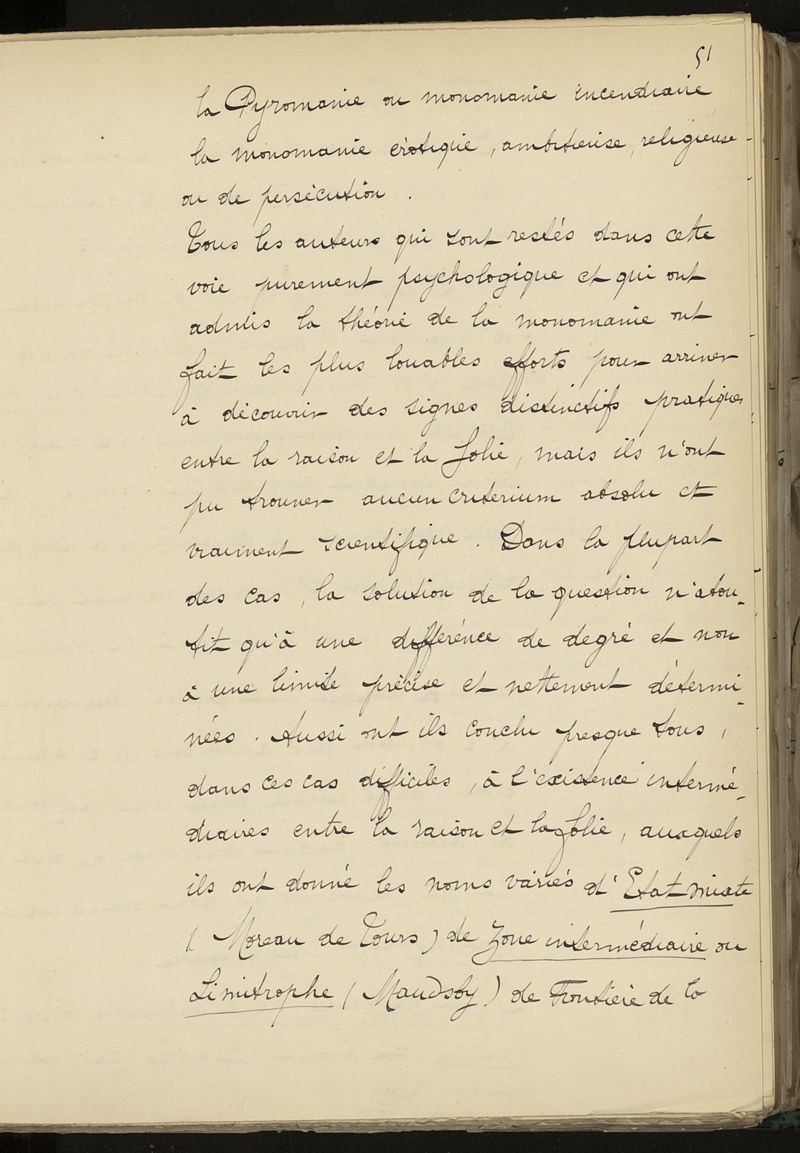 51
la Pyromanie ou monomanie incendiaire,
la monomanie érotique, ambitieuse, religieuse
ou de persécution.
Tous les auteurs qui sont restés dans cette
voie purement psychologique et qui ont
admis la théorie de la monomanie ont
fait les plus louables efforts pour arriver
à découvrir des signes distinctifs pratiques
entre la raison et la folie, mais ils n'ont
pu trouver aucun criterium absolu et
vraiment scientifique. Dans la plupart
des cas, la solution de la question n'abou-
tit qu'à une différence de degré et non
à une limite précise et nettement détermi-
nées. Aussi ont ils conclu presque tous,
dans ces cas difficiles, à l'existence intermé-
diaires entre la raison et la folie, auxquels
ils ont donné les noms variés d'Etat mixte
(Moreau de Tours) de Zone intermédiaire ou
Limitrophe (Maudsby) de Frontière de la